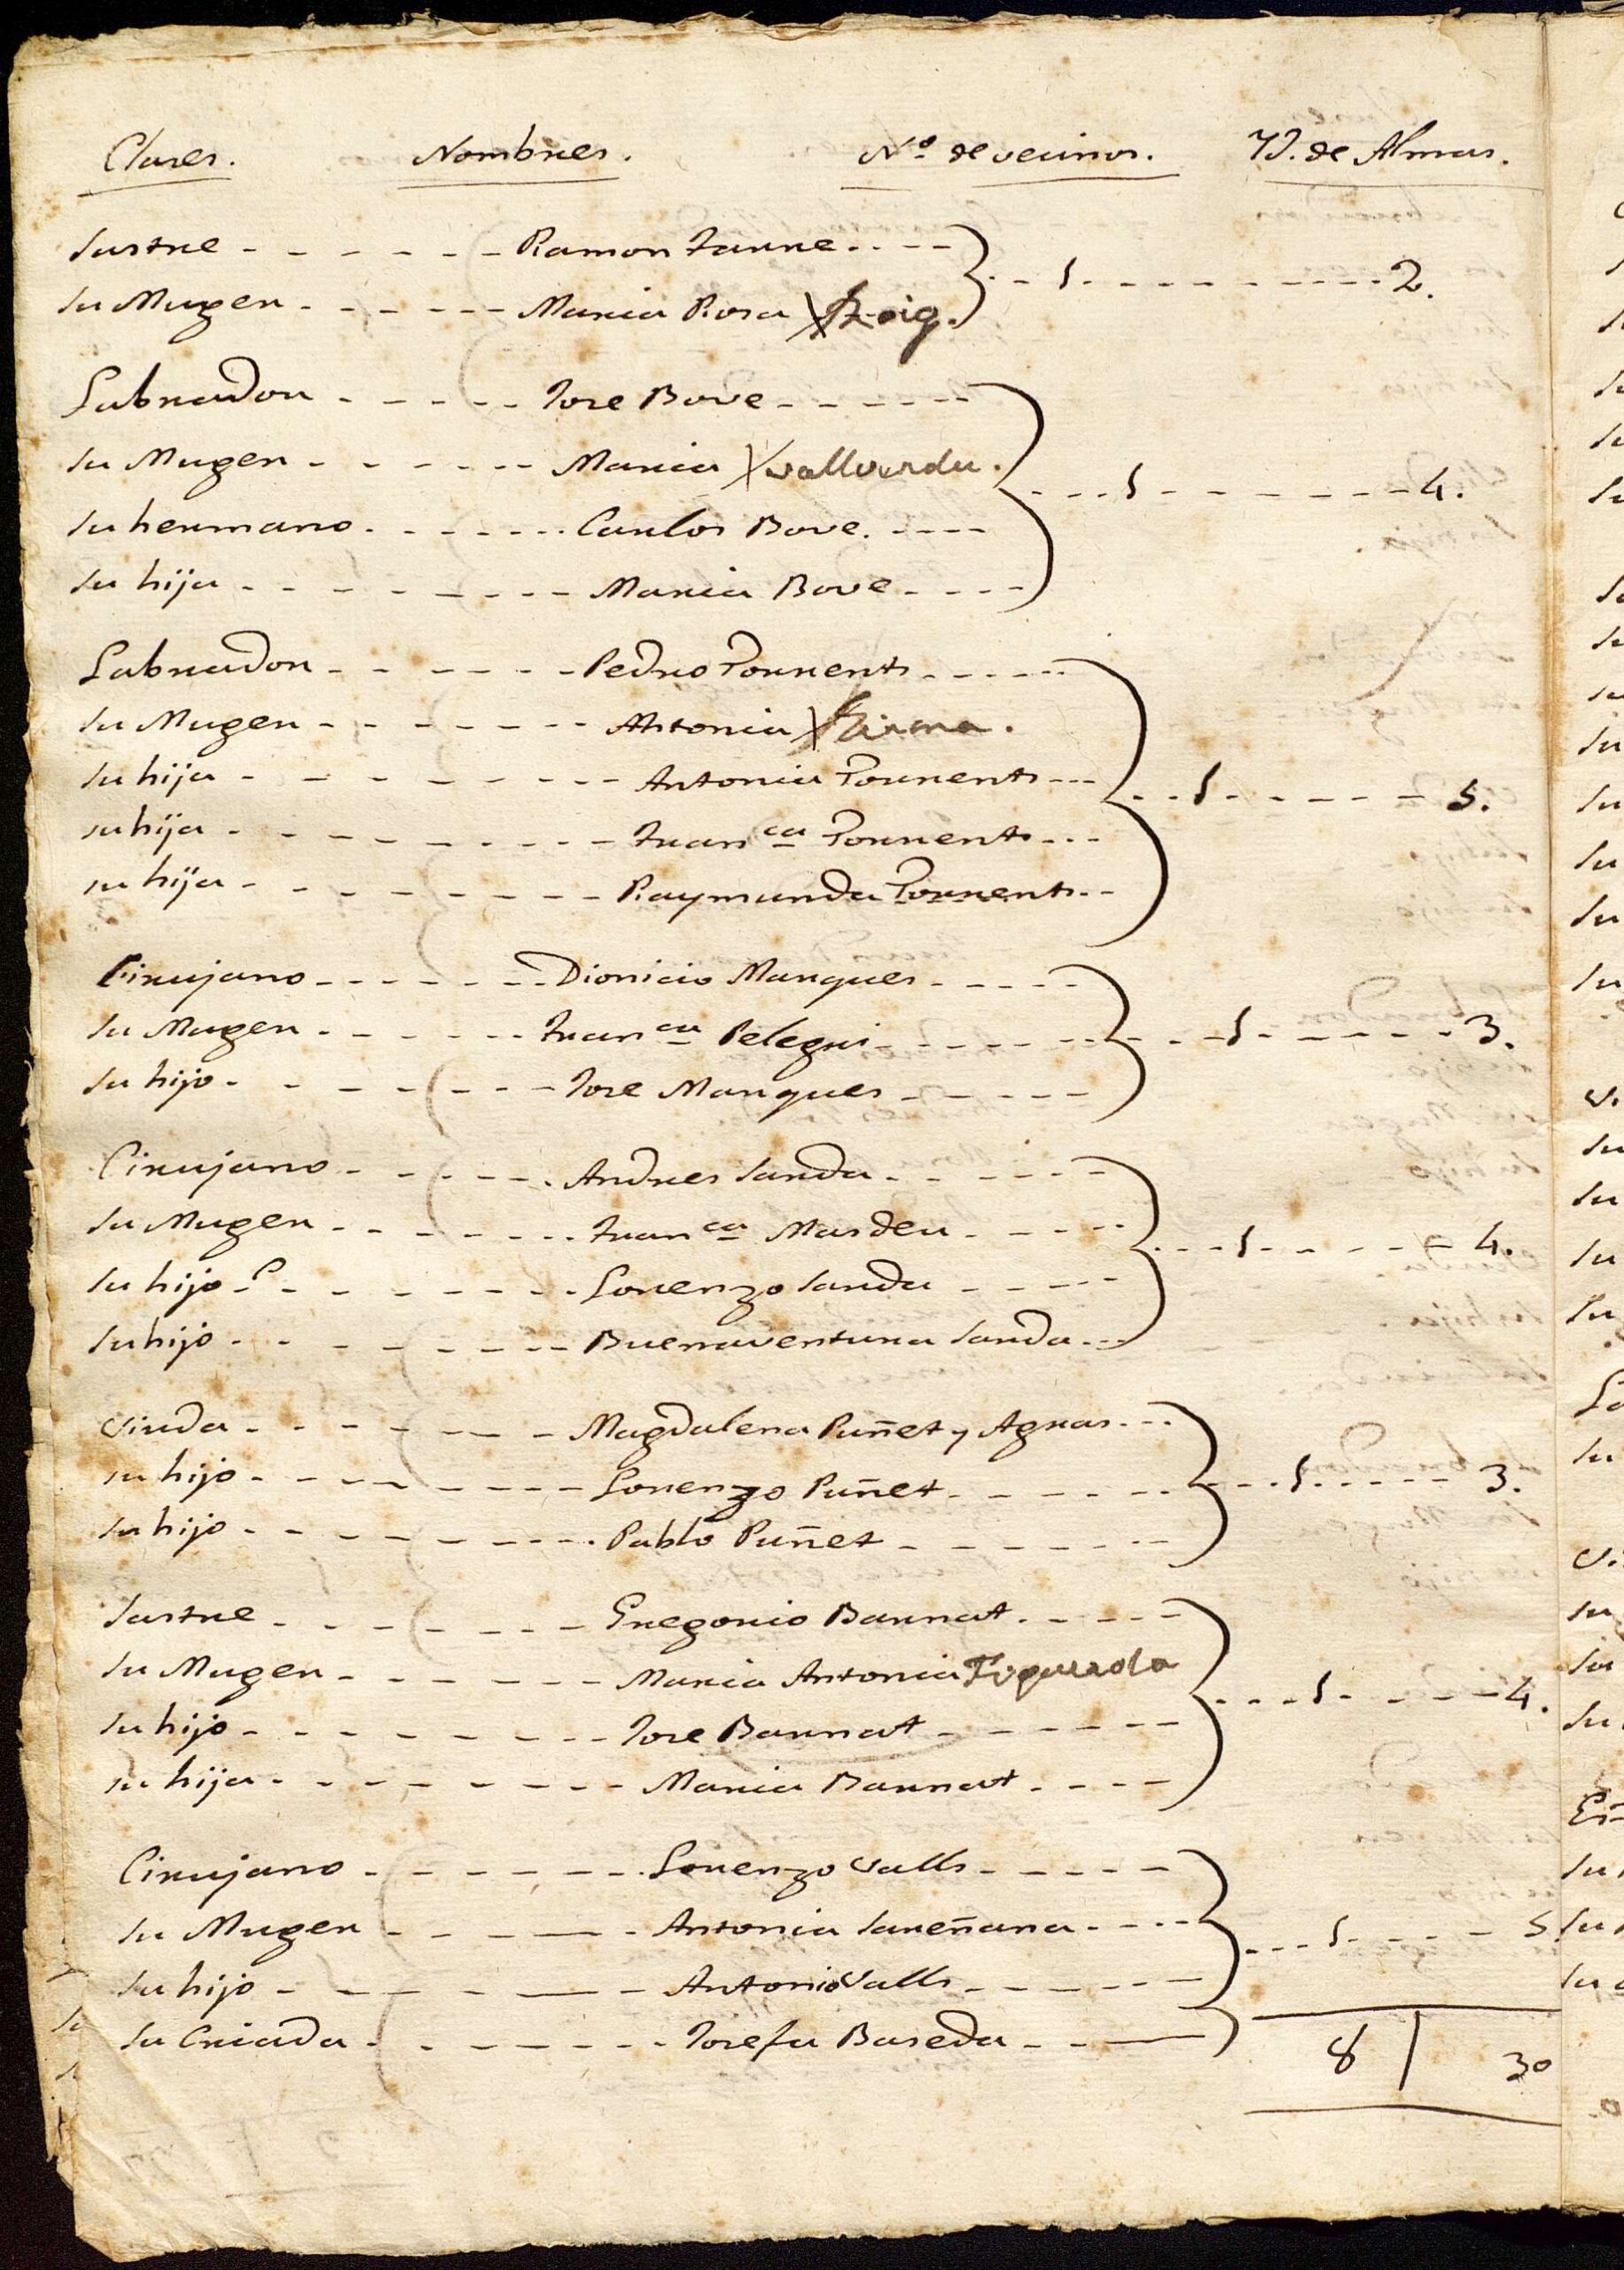 Clases. Nombres. Nº de vecinos. Yd. de Almas.
Sastre Ramon Farre
Su Muger Maria Rosa Roig. 1 2.
Labrador Jose Bove
Su Muger Maria Vallverdu.
Su hermano Carlos Bove. 1 4.
Su hija Maria Bove
Labrador Pedro Torrents
Su Muger Antonia
Su hija Antonia Torrents 1 5.
su hija Franca Torrents
su hija Raymunda Torrents
Cirujano Dionicio Marques
Su Muger Franca Pelegri 1 3.
Su hijo Jose Marques
Cirujano Andres Sarda
Su Muger Franca Masdeu 1 4.
Su hijo Lorenzo Sarda
Su hijo Buenaventura Sarda
Viuda Magdalena Puñet y Agras
su hijo Lorenzo Puñet 1 3.
su hijo Pablo Puñet
Sastre Gregorio Barrat
Su Muger Maria Antonia Figuerola 1 4.
Su hijo Jose Barrat
su hija Maria Barrat
Cirujano Lorenzo Valls
Su Muger Antonia Sareñana 1 5
Su hijo Antonio Valls
Su Criada Josefa Baseda
8 30